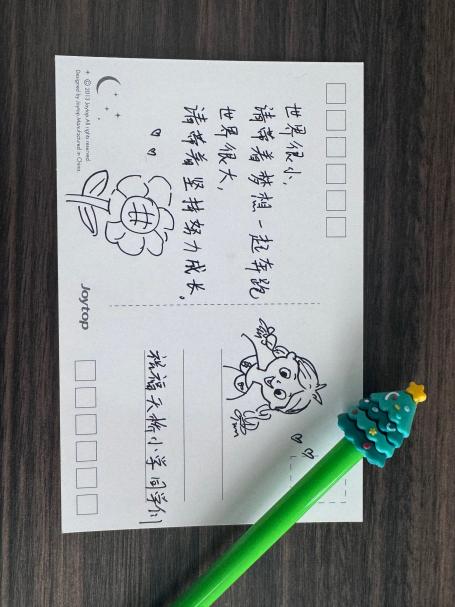 世界很小,
请带着梦想一起奔跑
世界很大,
请带着坚持努力成长。
祝福天桥小学同学们
Joytop
© 2013 Joytop All rights reserved
Designed by Joytop. Manufactured in China.